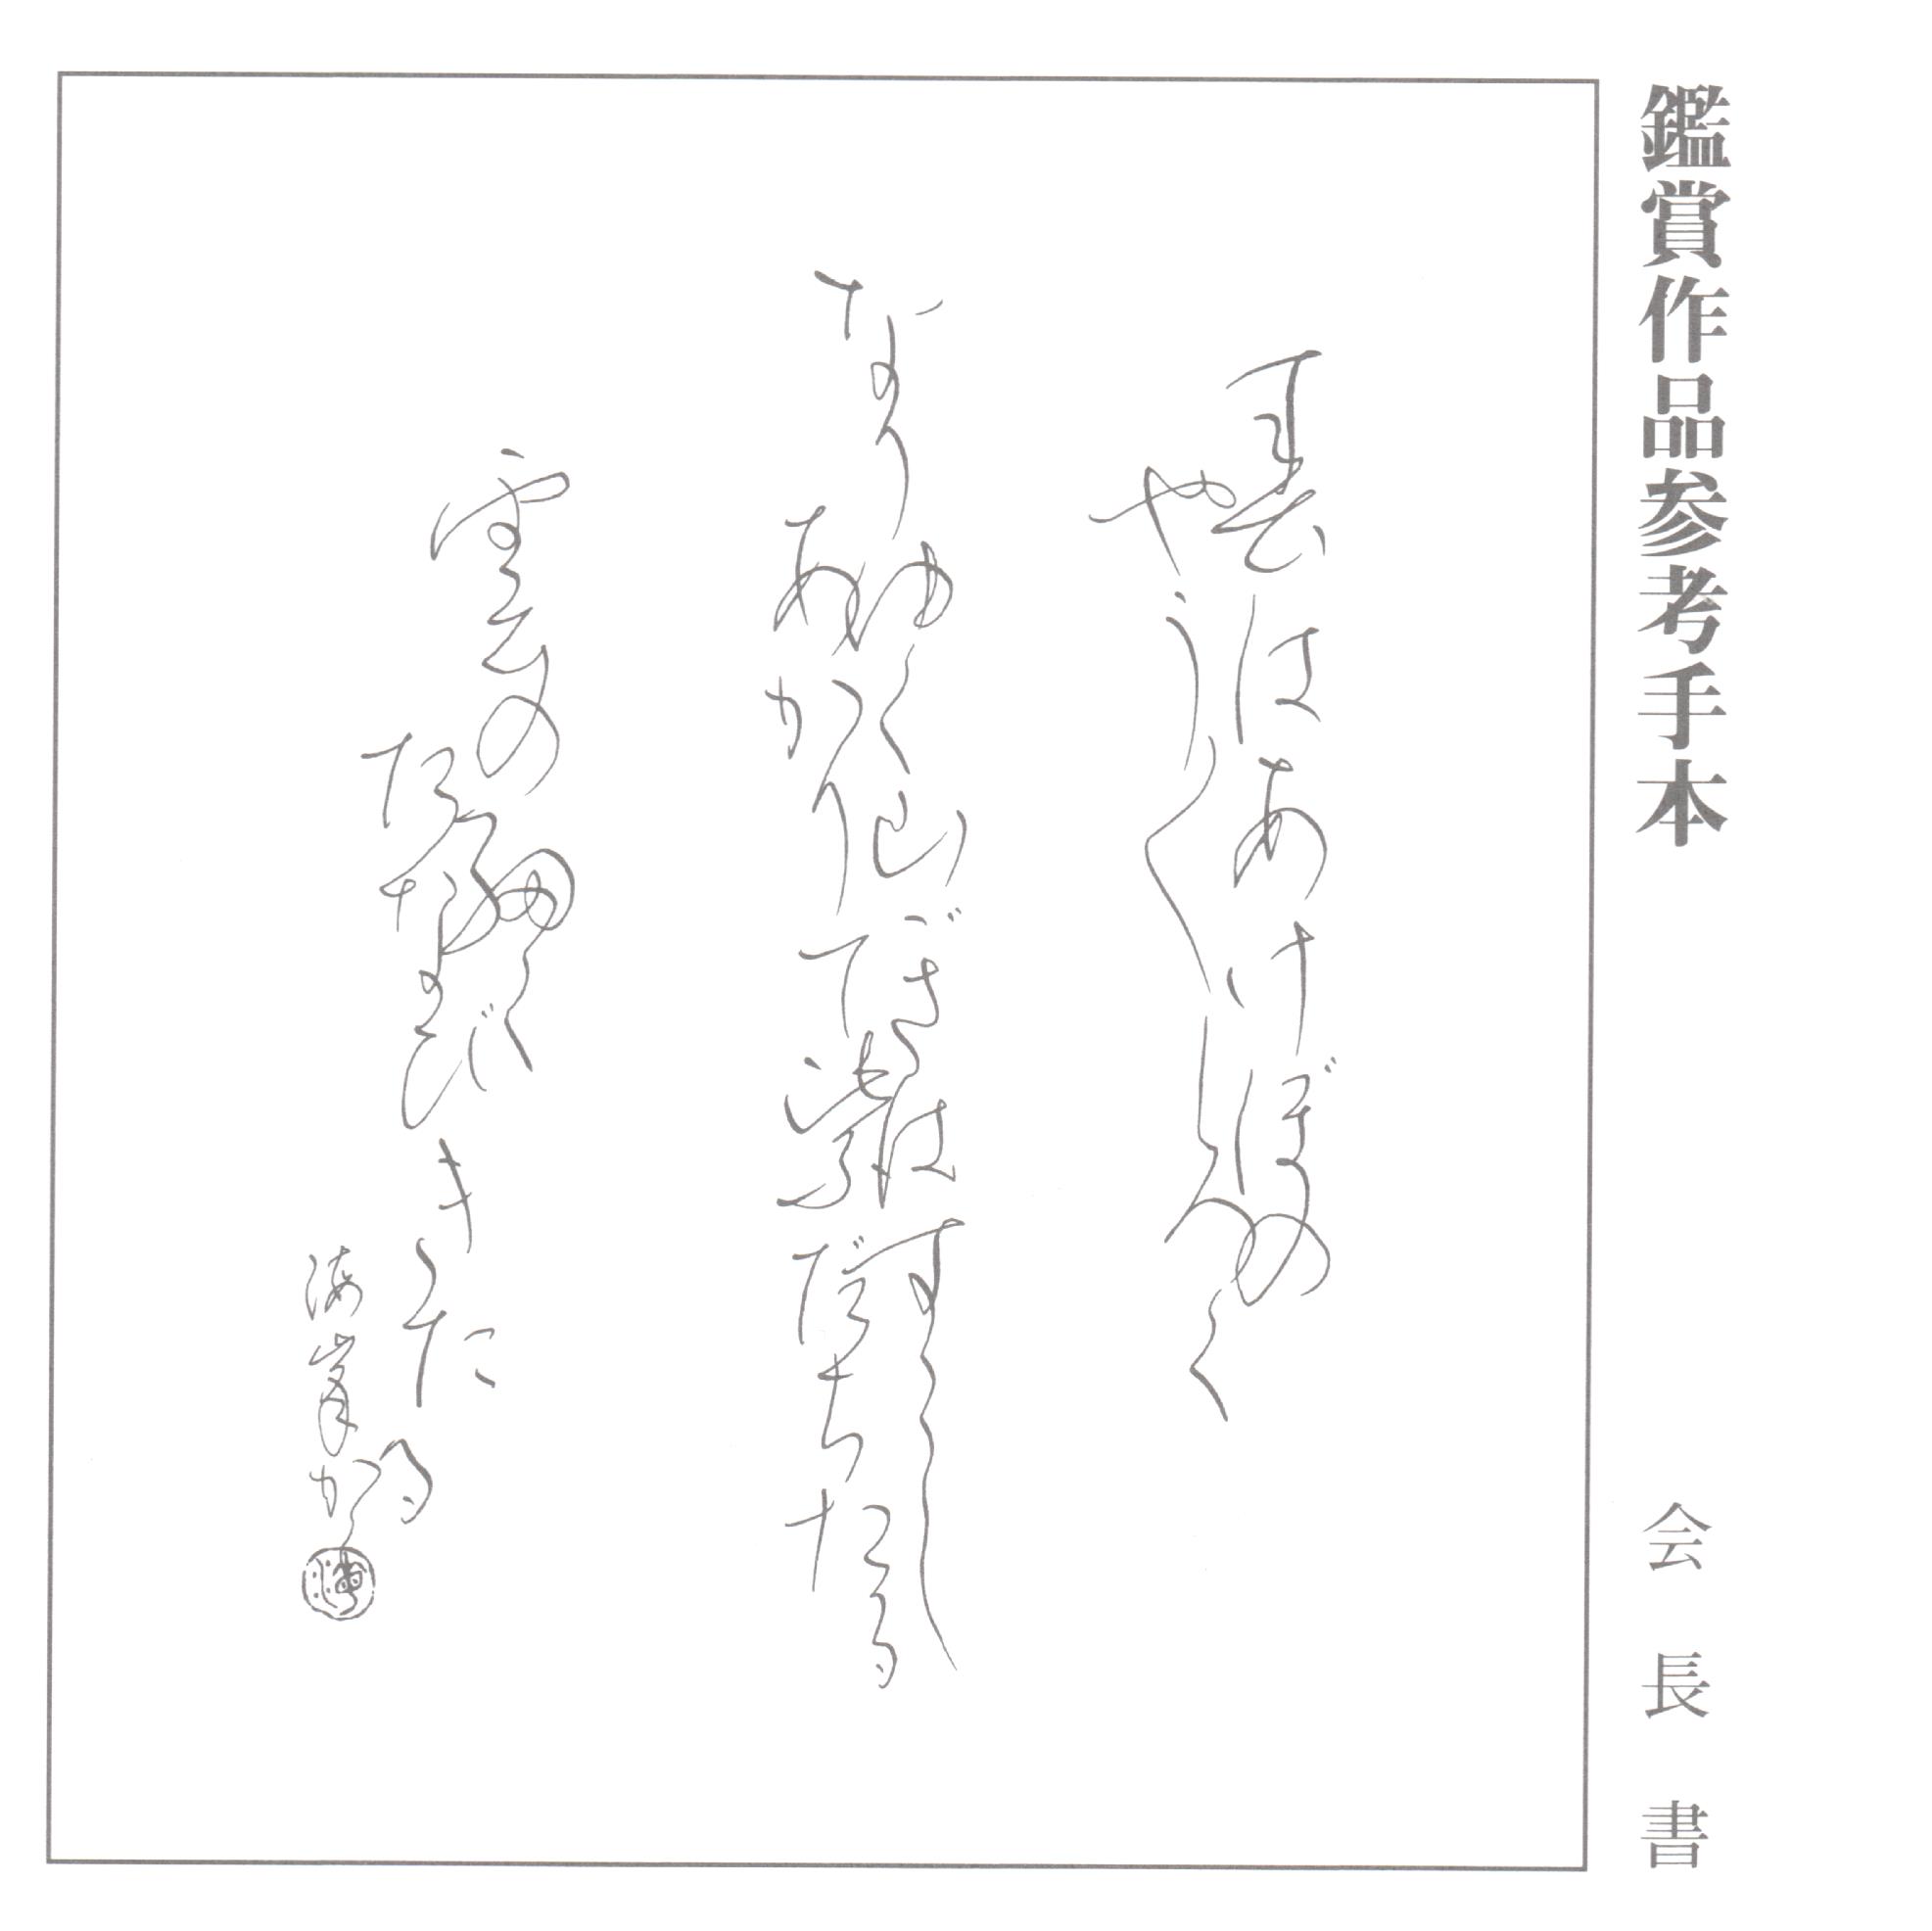 鑑賞作品参考手本
会長書
春はあけぼの
やう〱しろく
なりゆく山ぎはすこし
あかりて紫だちたる
雲の細く
たなびきたる